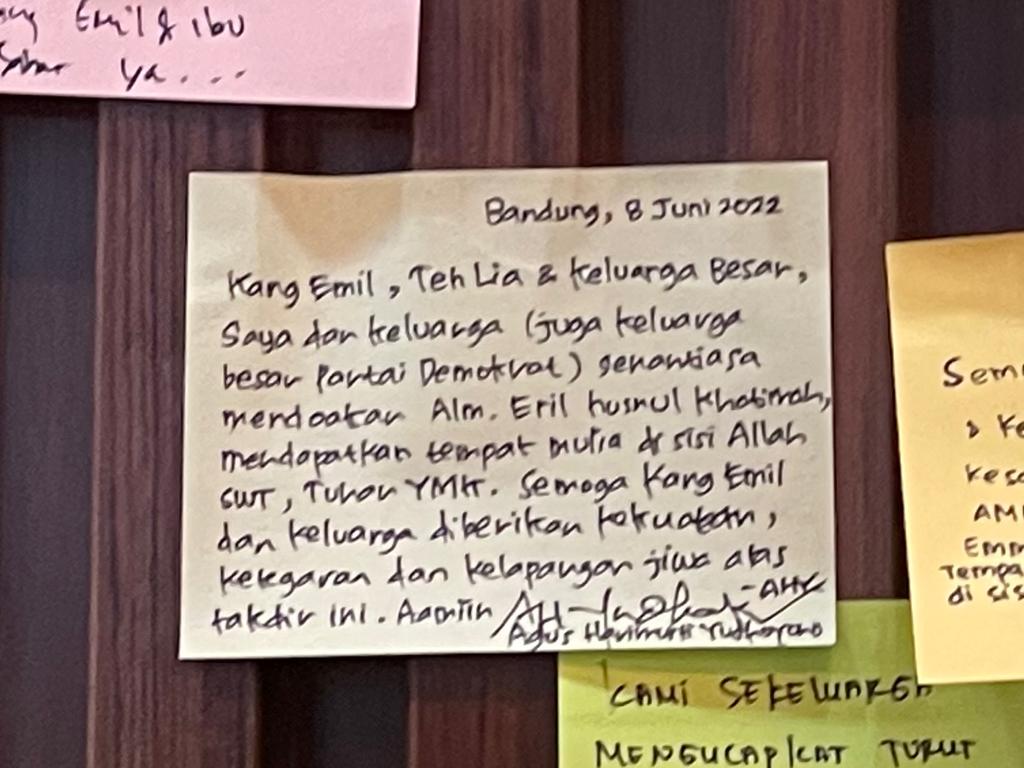 Emil & Ibu
Sabar ya....
Bandung, 8 Juni 2022
Kang Emil, Teh Lia & Keluarga Besar,
Saya dan keluarga (juga keluarga
besar Partai Demokrat) senantiasa
mendoakan Alm. Eril husnul khotimah,
mendapatkan tempat mulia di sisi Allah
SWT, Tuhan YMK. Semoga Kang Emil
dan keluarga diberikan kekuatan,
ketegaran dan kelapangan jiwa atas
takdir ini. Aamiin
-AHY
Agus Harimurti Yudhoyono
Sem
Ke
Kesa
AM
Emm
Tempa
di sis
CAMI SEKELUARGA
MENGUCAPKAT TURUT